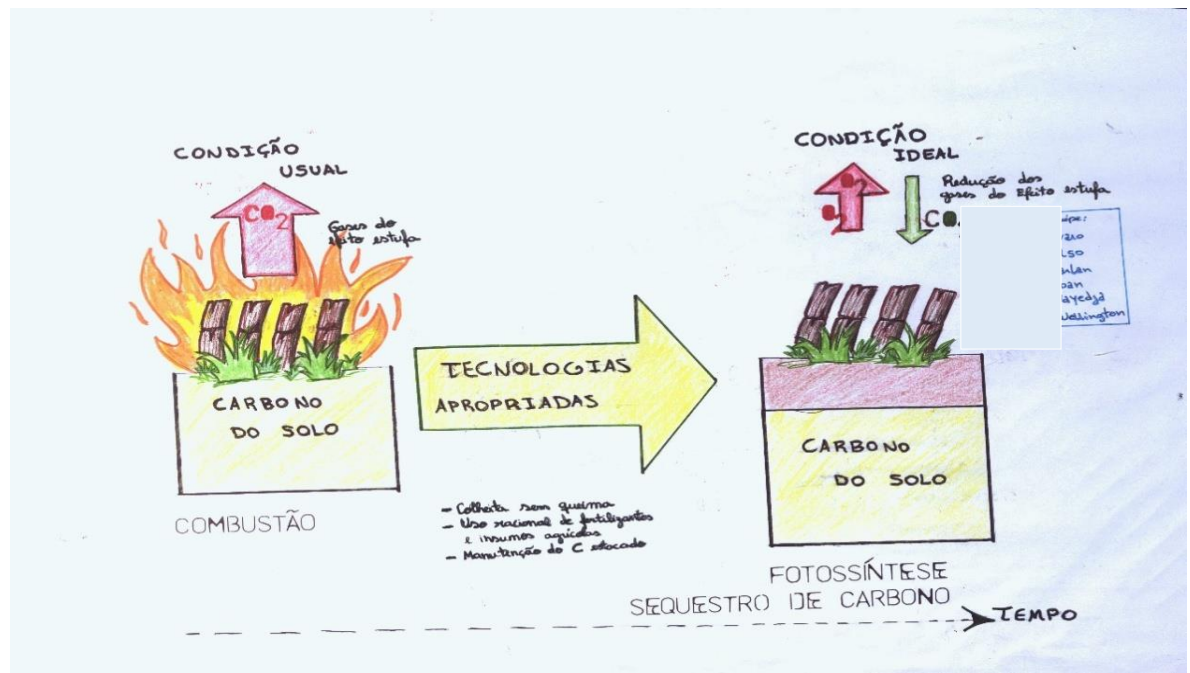 CONDIÇÃO
USUAL
CO2
Gases do
efeito estufa
CARBONO
DO SOLO
COMBUSTÃO
TECNOLOGIAS
APROPRIADAS
- Colheita sem queima
- Uso racional de fertilizantes
e insumos agrícolas
- Manutenção do C estocado
CONDIÇÃO
IDEAL
O2
O2
CO
Redução dos
gases do Efeito estufa
Wellington
CARBONO
DO SOLO
FOTOSSÍNTESE
SEQUESTRO DE CARBONO
TEMPO